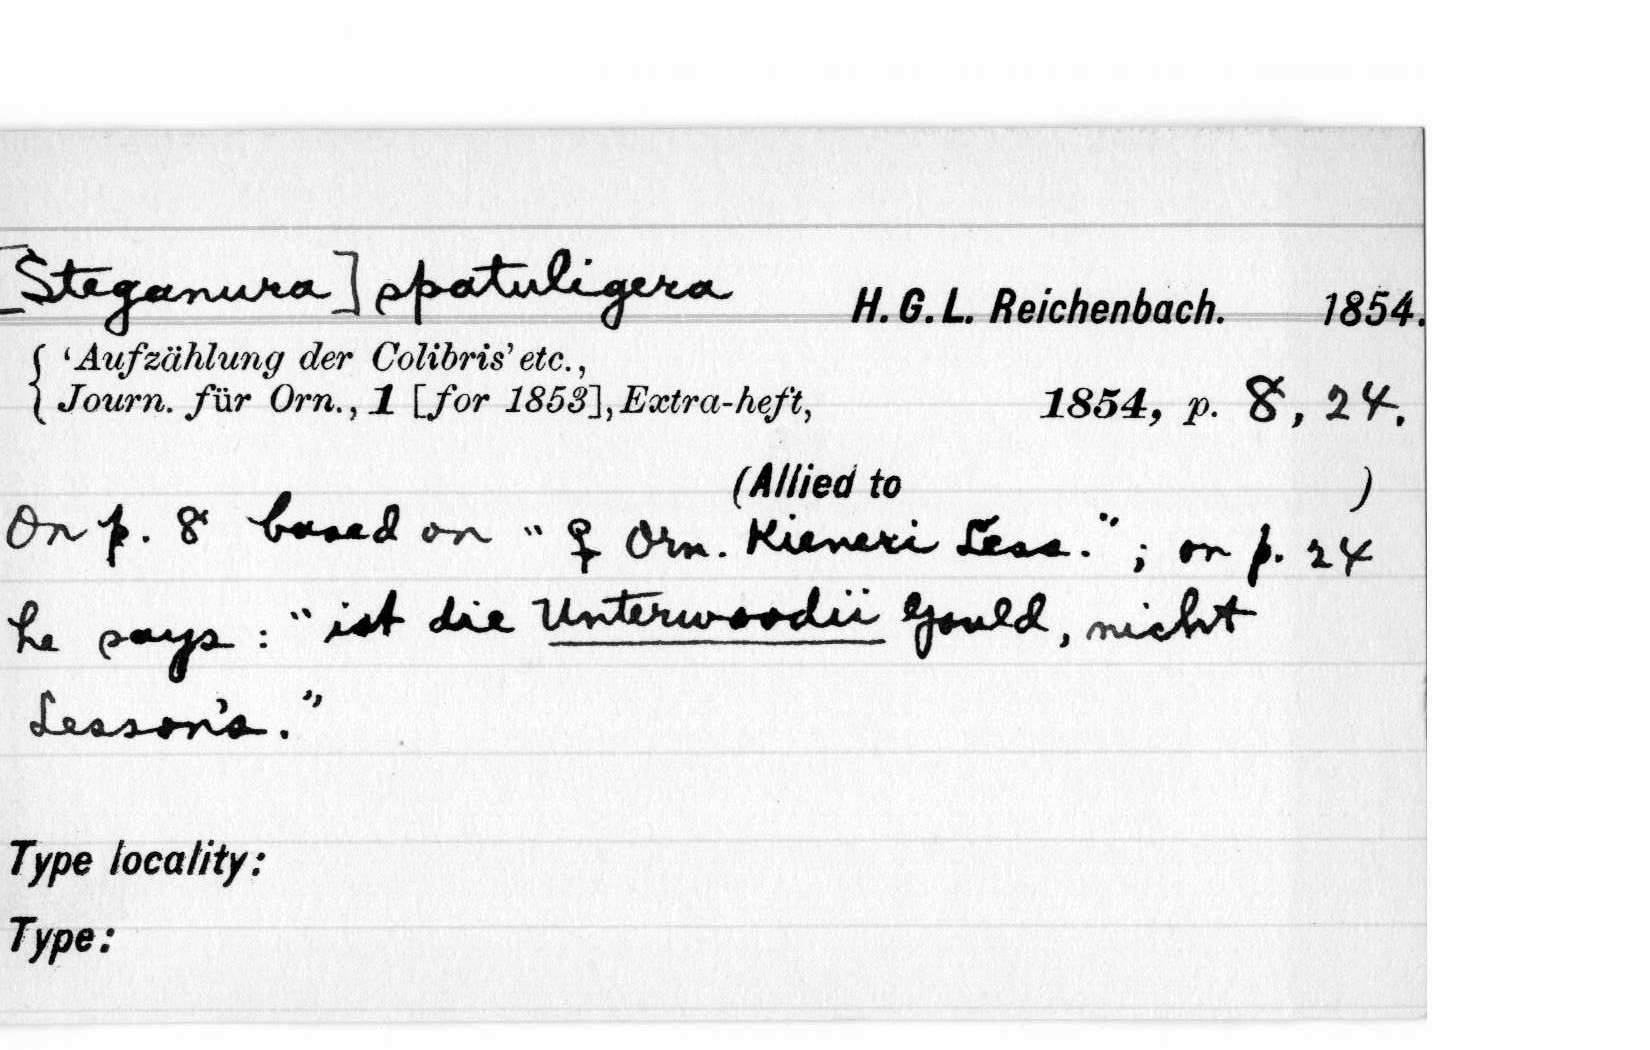 [Steganura] spatuligera H. G. L. Reichenbach. 1854.
'Aufzählung der Colibris' etc.,
Journ. für Orn., 1 [for 1853], Extra-heft, 1854, p. 8, 24.
(Allied to )
On p. 8 based on "♀ Orn. Kieneri Less."; on p. 24
he says: "ist die Unterwoodii Gould, nicht
Lesson's."
Type locality:
Type: